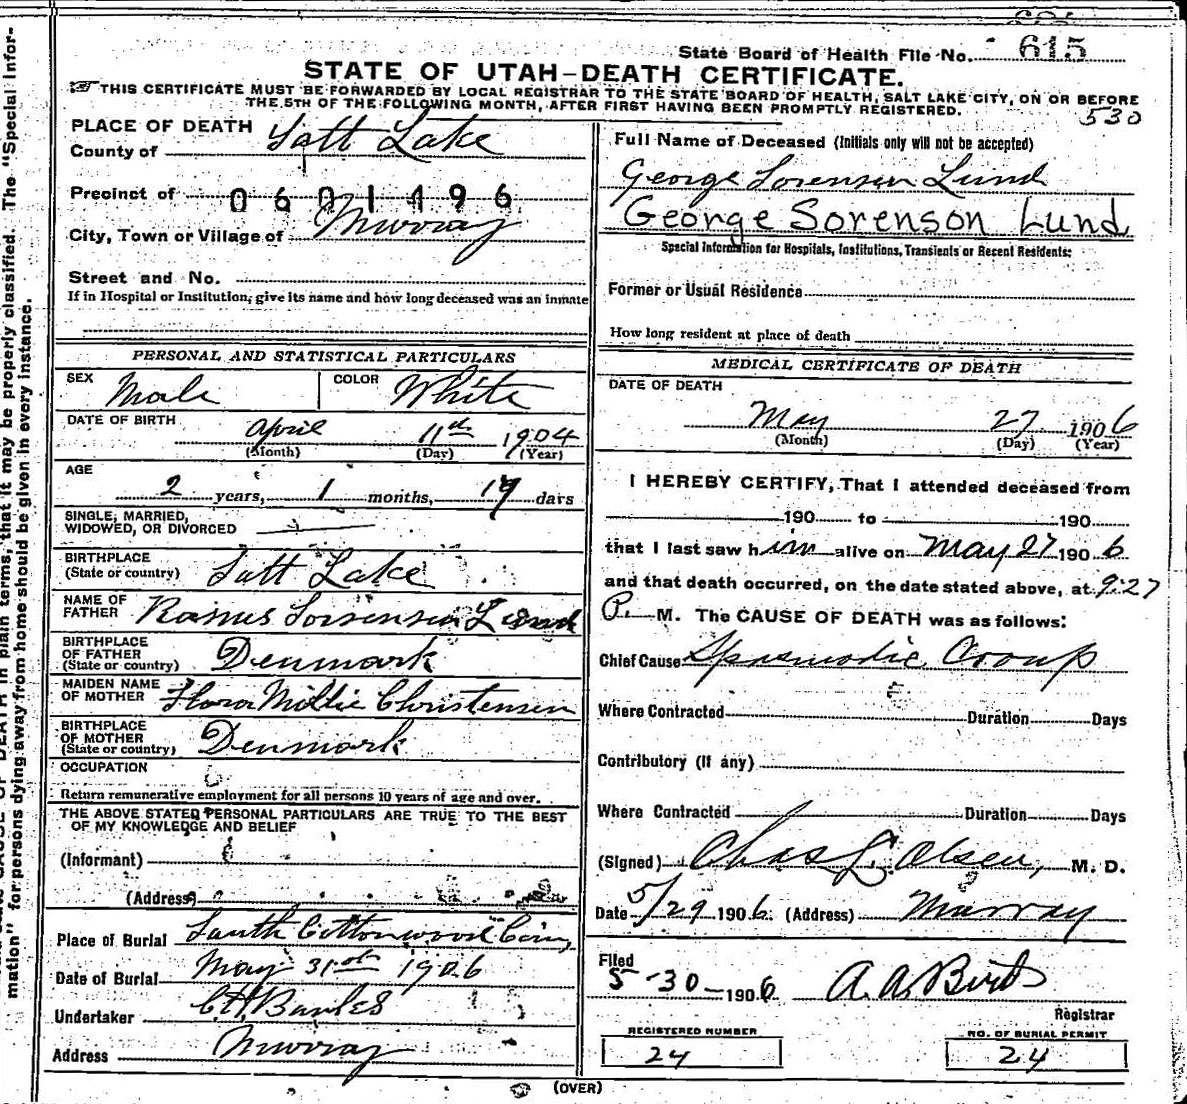 State Board of Health File No. 615
STATE OF UTAH-DEATH CERTIFICATE.
THIS CERTIFICATE MUST BE FORWARDED BY LOCAL REGISTRAR TO THE STATE BOARD OF HEALTH, SALT LAKE CITY, ON OR BEFORE
THE 5TH OF THE FOLLOWING MONTH, AFTER FIRST HAVING BEEN PROMPTLY REGISTERED.
530
PLACE OF DEATH
County of Salt Lake
Precinct of 0601496
City, Town or Village of Murray
Street and No.
If in Hospital or Institution, give its name and how long deceased was an inmate
PERSONAL AND STATISTICAL PARTICULARS
SEX Male COLOR White
DATE OF BIRTH April 11th 1904
(Month) (Day) (Year)
AGE
2 years, 1 months, days
SINGLE, MARRIED,
WIDOWED, OR DIVORCED
BIRTHPLACE
(State or country) Salt Lake
NAME OF
FATHER Lund
BIRTHPLACE
OF FATHER
(State or country) Denmark
MAIDEN NAME
OF MOTHER Flora Millie Christensen
BIRTHPLACE
OF MOTHER
(State or country) Denmark
OCCUPATION
Return remunerative employment for all persons 10 years of age and over.
THE ABOVE STATED PERSONAL PARTICULARS ARE TRUE TO THE BEST
OF MY KNOWLEDGE AND BELIEF
(Informant)
(Address)
Place of Burial South Cottonwood Cem,
Date of Burial May 31st 1906
Undertaker
Address Murray
Full Name of Deceased (Initials only will not be accepted)
George Sorensen Lund
George Sorenson Lund
Special Information for Hospitals, Institutions, Transients or Recent Residents:
Former or Usual Residence
How long resident at place of death
MEDICAL CERTIFICATE OF DEATH
DATE OF DEATH
May 27 1906
(Month) (Day) (Year)
I HEREBY CERTIFY, That I attended deceased from
190 to 190
that I last saw him alive on May 27 1906
and that death occurred, on the date stated above, at 9:27
P. M. The CAUSE OF DEATH was as follows:
Chief Cause Spasmodic Croup
Where Contracted Duration Days
Contributory (If any)
Where Contracted Duration Days
(Signed) Chas L. Olsen, M. D.
Date 5/29 1906. (Address) Murray
Filed
5-30-1906 A. A. Birt
Registrar
REGISTERED NUMBER
24
NO. OF BURIAL PERMIT
24
(OVER)
mation" for persons dying away from home should be given in every instance.